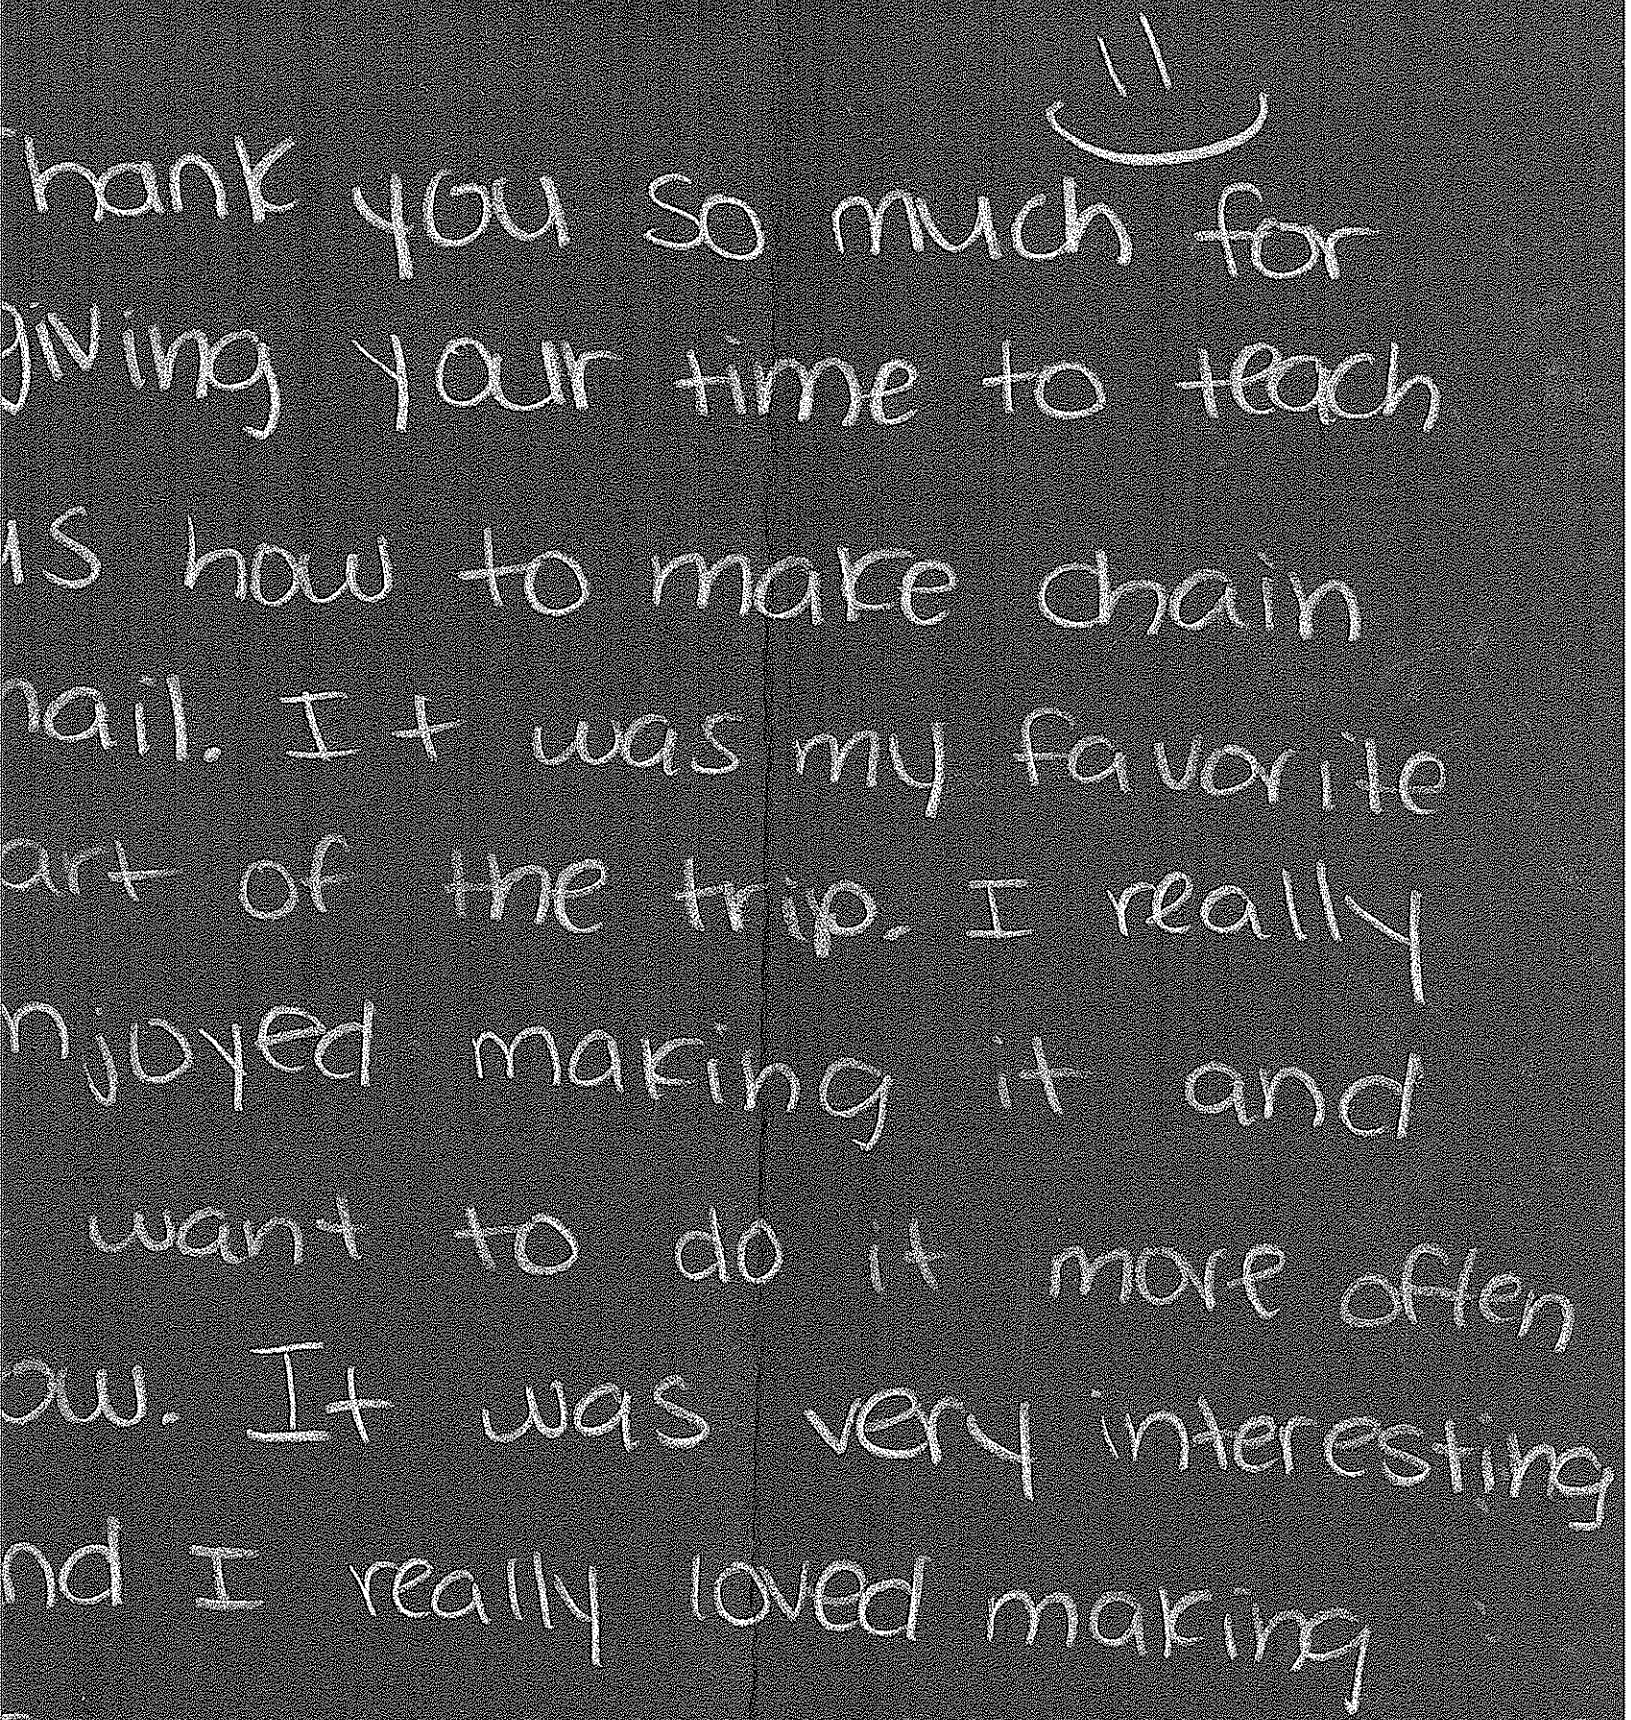 Thank you so much for
giving your time to teach
us how to make chain
mail. It was my favorite
part of the trip. I really
enjoyed making it and
want to do it more often
now. It was very interesting
and I really loved making